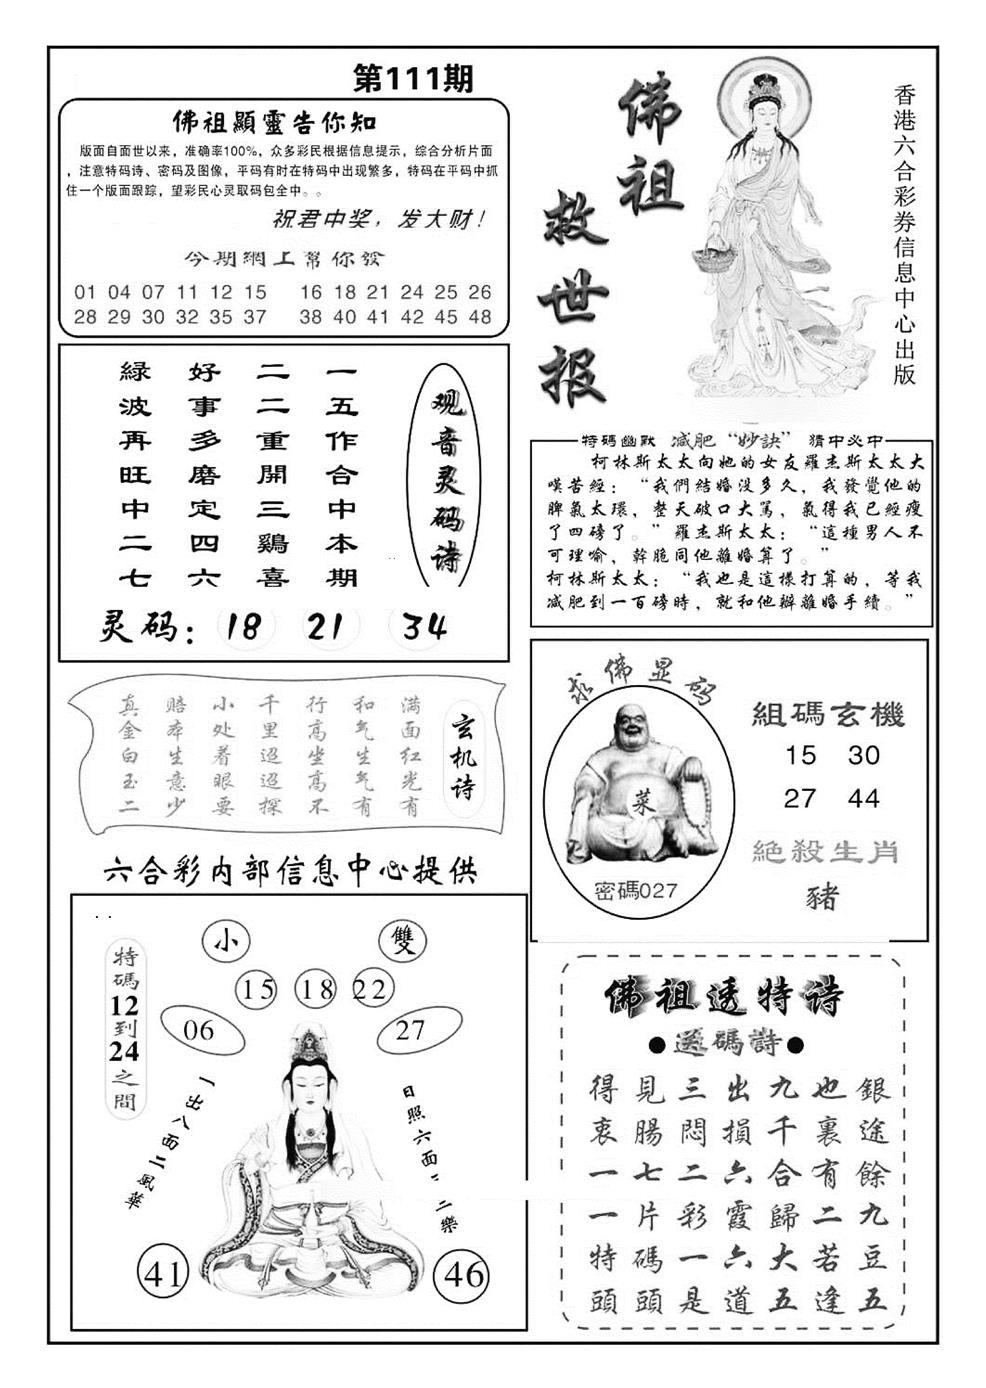 第111期
佛祖顯靈告你知
版面自面世以来，准确率100%，众多彩民根据信息提示，综合分析片面
，注意特码诗、密码及图像，平码有时在特码中出现繁多，特码在平码中抓
住一个版面跟踪，望彩民心灵取码包全中。。
祝君中奖，发大财！
今期網上幫你發
01 04 07 11 12 15 16 18 21 24 25 26
28 29 30 32 35 37 38 40 41 42 45 48
佛祖
救世报
香港六合彩券信息中心出版
观音灵码诗
一五作合中本期
二二重開三鷄喜
好事多磨定四六
緑波再旺中二七
灵码：18 21 34
特碼幽默 减肥“妙訣” 猜中必中
柯林斯太太向她的女友羅杰斯太太大
嘆苦經：“我們結婚没多久，我發覺他的
脾氣太環，整天破口大駡，氣得我已經瘦
了四磅了。”羅杰斯太太：“這種男人不
可理喻，幹脆同他離婚算了。”
柯林斯太太：“我也是這樣打算的，等我
减肥到一百磅時，就和他辦離婚手續。”
玄机诗
满面红光有
和气生气有
行高坐高不
千里迢迢探
小处着眼要
赔本生意少
真金白玉二
求佛显码
菜
密碼027
組碼玄機
15 30
27 44
絕殺生肖
豬
六合彩内部信息中心提供
小 雙
15 18 22
06 27
特碼12到24之間
一出八面二風華
日照六面二三樂
41 46
佛祖透特诗
●送碼詩●
得見三出九也銀
衷腸悶損千裏途
一七二六合有餘
一片彩霞歸二九
特碼一六大若豆
頭頭是道五逢五